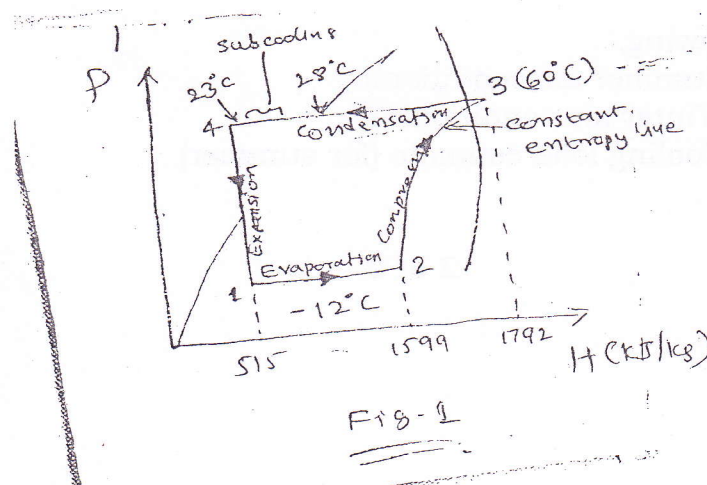 1
subcooling
P
23°C
28°C
3 (60°C)
4
Condensation
constant
entropy line
Expansion
Compression
Evaporation
1
2
-12°C
515
1599
1792
H (KJ/kg)
Fig-1